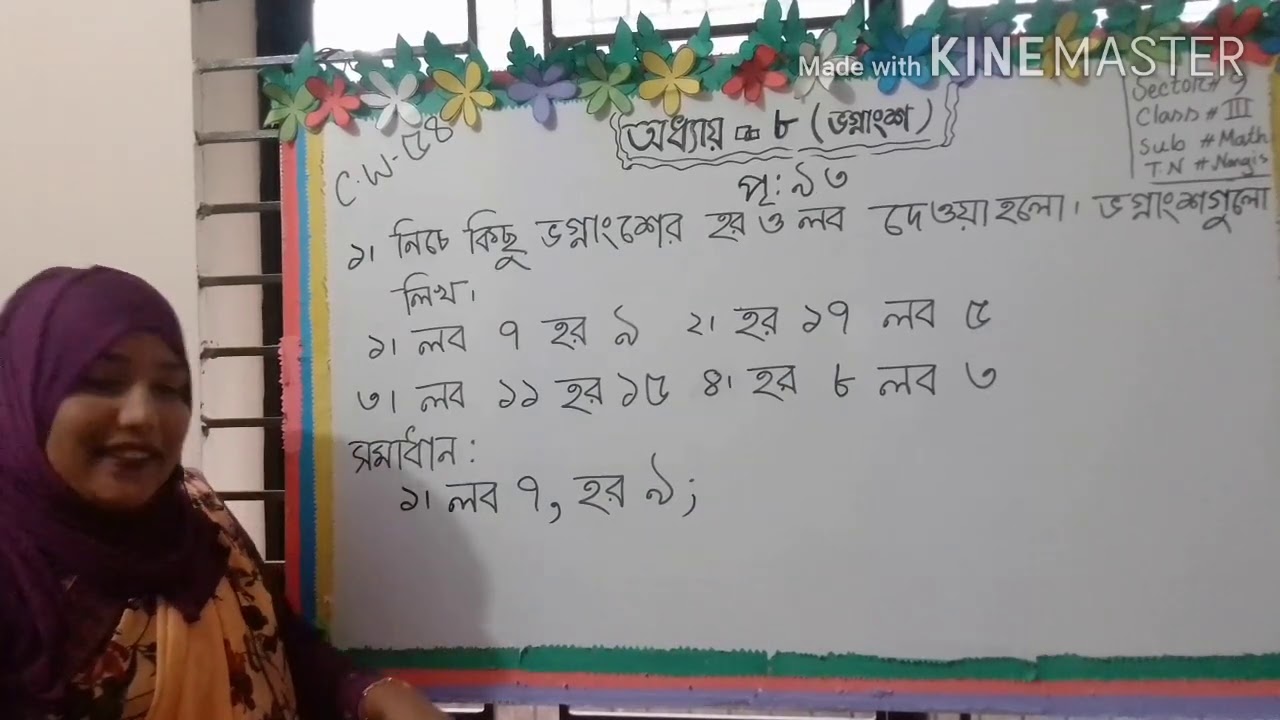 Made with KINEMASTER
Sector # 9
Class # III
Sub # Math
T.N # Nargis
C.W-৫৪
অধ্যায় ৮ (ভগ্নাংশ)
পৃ: ৯৩
১। নিচে কিছু ভগ্নাংশের হর ও লব দেওয়া হলো। ভগ্নাংশগুলো
লিখ।
১। লব ৭ হর ৯ ২। হর ১৭ লব ৫
৩। লব ১১ হর ১৫ ৪। হর ৮ লব ৩
সমাধান:
১। লব ৭, হর ৯;